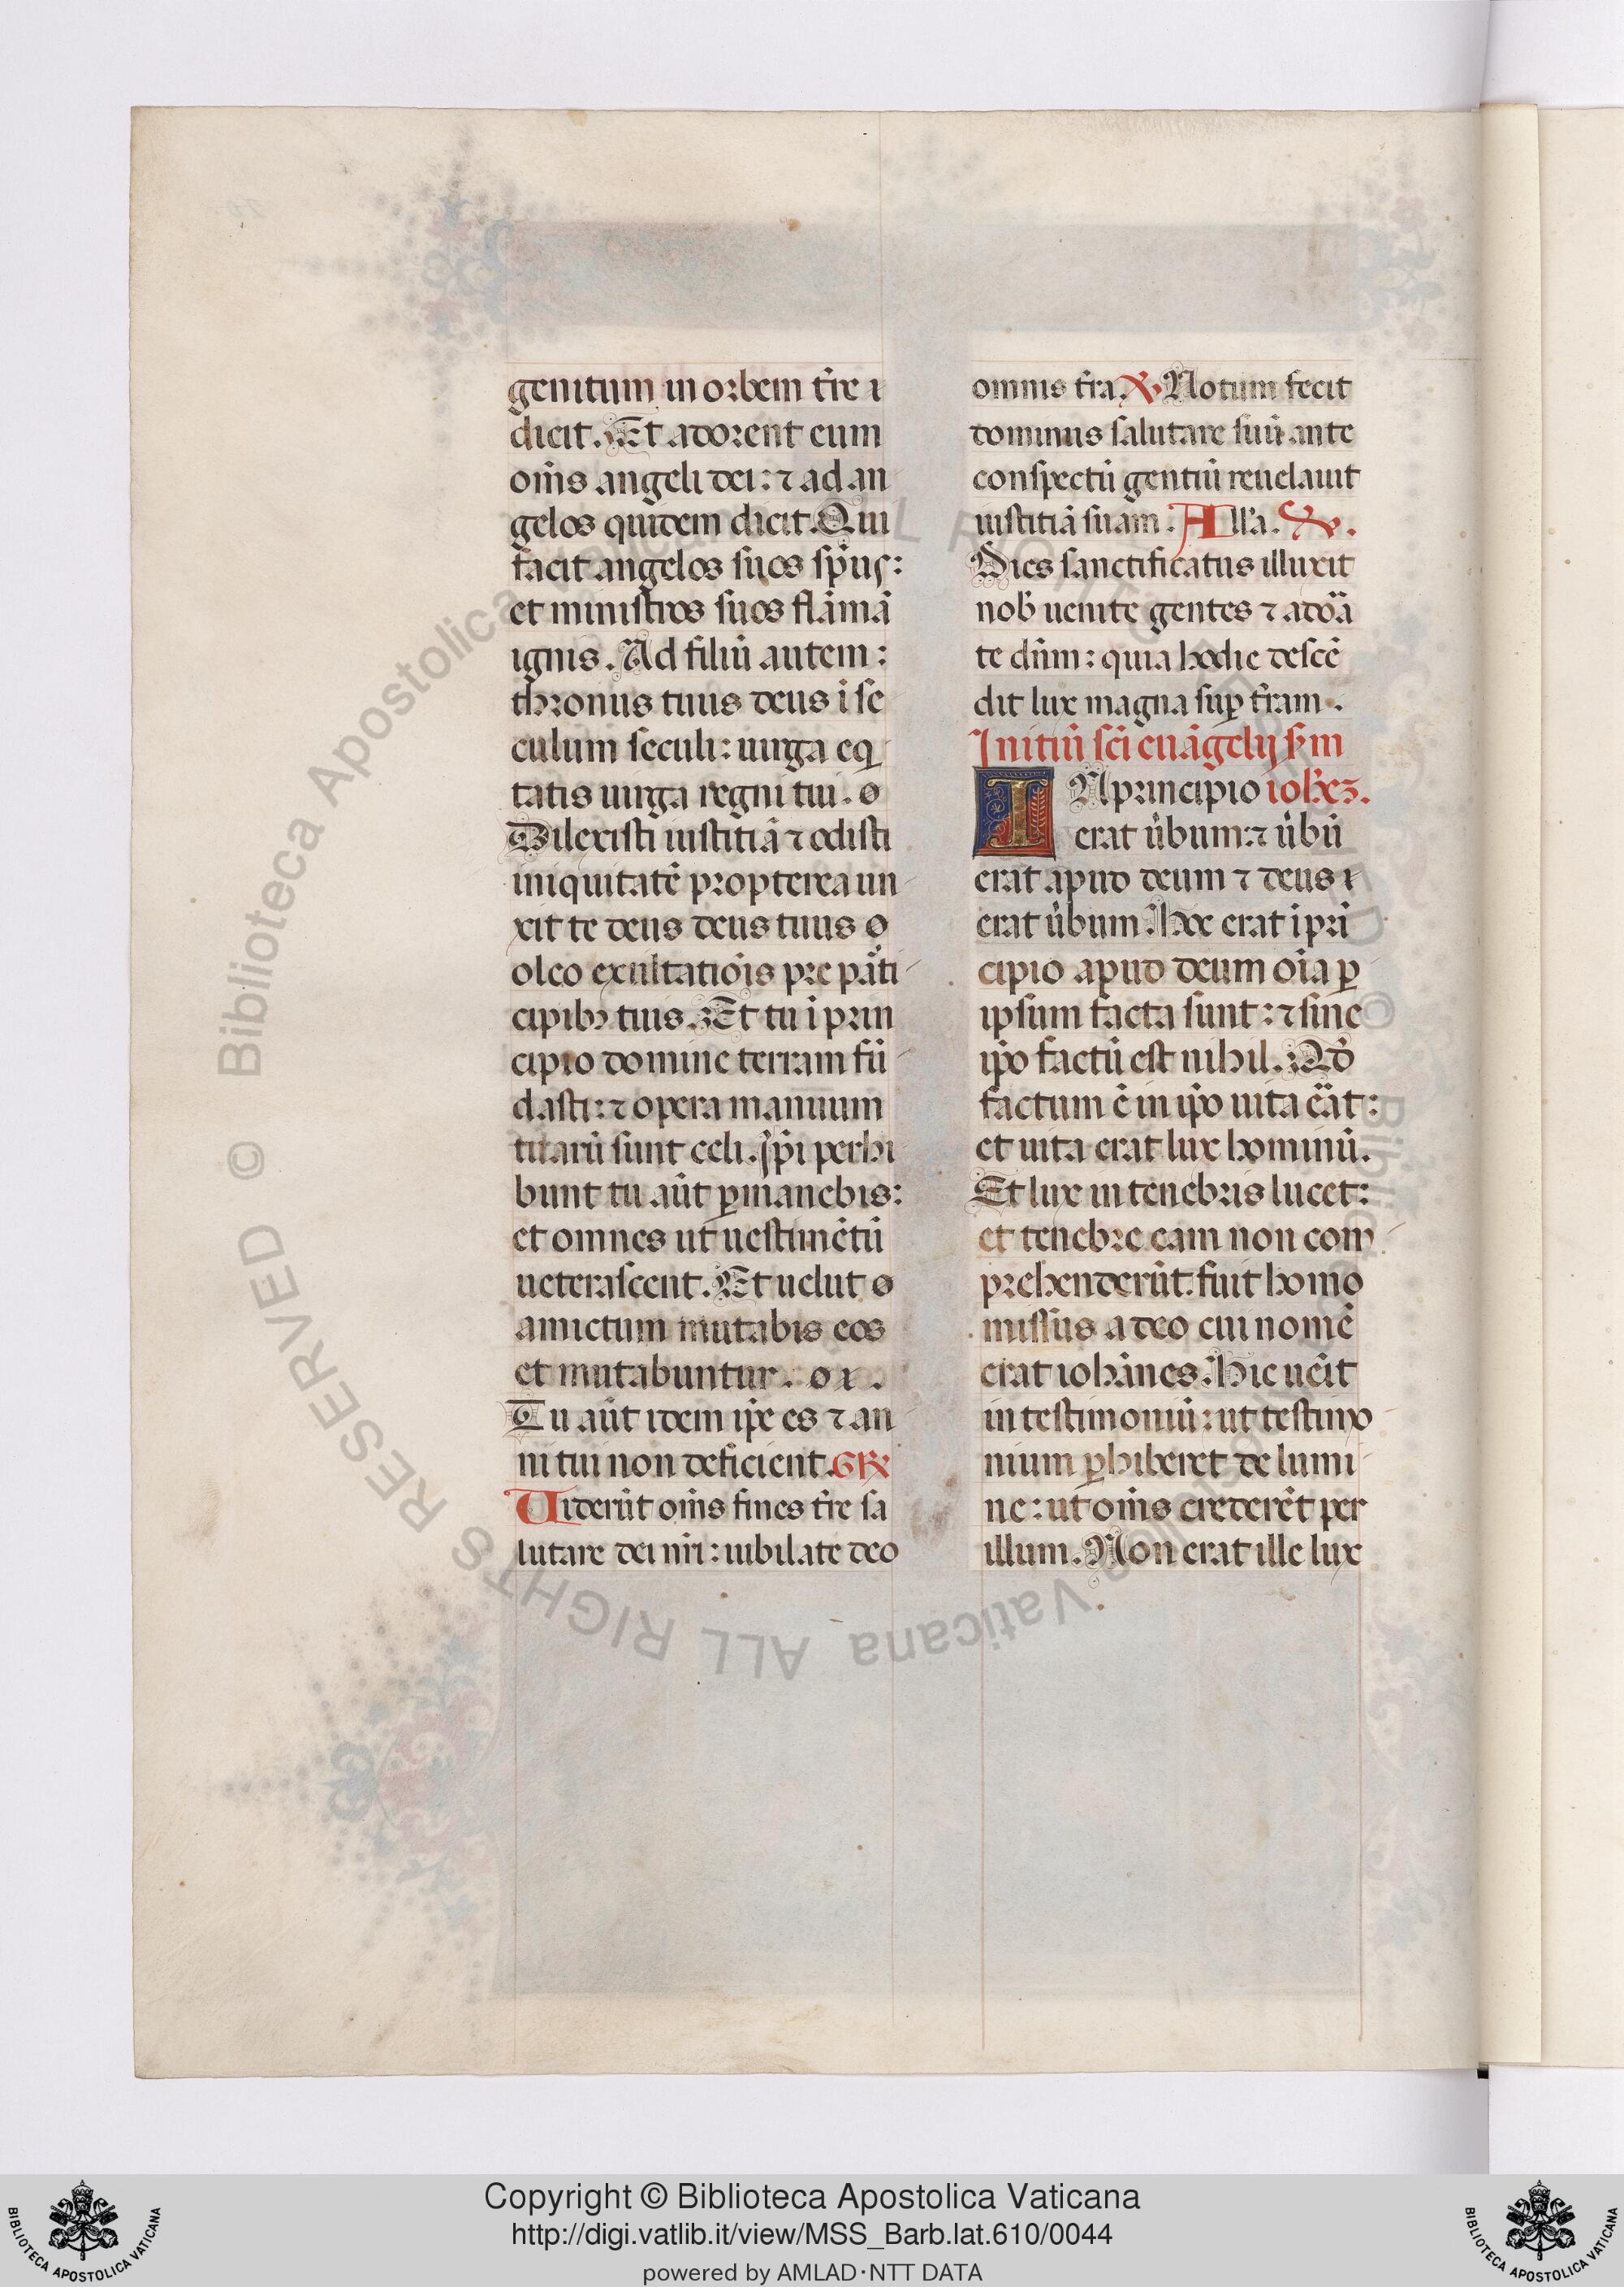 genitum in orbem tr̄e ı
dicit. Et adorent eum
om̄s angeli dei: ⁊ ad an
gelos quidem dicit. Qui
facit angelos suos sp̄us:
et ministros suos flāmā
ignis. Ad filiū autem:
thronus tuus deus ī se
culum seculi: uirga eq̄
tatis uirga regni tui. o
Dilexisti iustitiā ⁊ odisti
iniquitatē propterea un
xit te deus deus tuus o
oleo exultatiōis pre pāti
cipibꝫ tuis. Et tu ī prin
cipio domine terram fū
dasti: ⁊ opera manuum
tuarū sunt celi. Ip̄i peribi
bunt tu aūt ꝑmanebis:
et omnes ut uestimētū
ueterascent. Et uelut o
amictum mutabis eos
et mutabuntur. o ı .
Tu aūt idem ip̄e es ⁊ an
ni tui non deficient. GR̄
Uiderūt om̄s fines tr̄e sa
lutare dei nr̄i: iubilate deo
omnis tr̄a. ℣. Notum fecit
dominus salutare suū ante
conspectū gentiū reuelauit
iustitiā suam. All'a. ℣.
Dies sanctificatus illuxit
nob̄ uenite gentes ⁊ adoā
te dn̄m: quia hodie descē
dit lux magna suꝑ tr̄am.
Initiū sc̄i euāgelij s̄m
IN principio ioh̄eꝫ.
erat ūbum: ⁊ ūbū
erat apud deum ⁊ deus ı
erat ūbum. Hoc erat ī pri
cipio apud deum oīa ꝑ
ipsum facta sunt: ⁊ sine
ip̄o factū est nihil. Qd̄
factum ē in ip̄o uita eāt:
et uita erat lux hominū.
Et lux in tenebris lucet:
et tenebre eam non com
prehenderūt. fuit homo
missus a deo cui nomē
erat iohānes. Hic uēit
in testimoniū: ut testimo
nium ꝑhiberet de lumi
ne: ut om̄s crederēt per
illum. Non erat ille lux
© Biblioteca Apostolica Vaticana ALL RIGHTS RESERVED
Copyright © Biblioteca Apostolica Vaticana
http://digi.vatlib.it/view/MSS_Barb.lat.610/0044
powered by AMLAD·NTT DATA
BIBLIOTECA APOSTOLICA VATICANA
BIBLIOTECA APOSTOLICA VATICANA